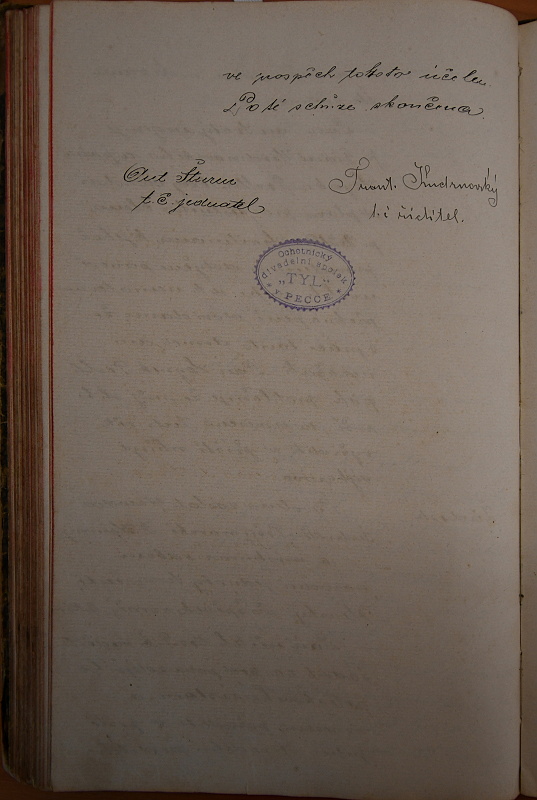 ve prospěch tohoto účelu.
Poté schůze skončena.
Ant. Šturm
t. č. jednatel
Frant. Kudrnovský
t. č. ředitel.
Ochotnický
divadelní spolek
„TYL"
v PECCE